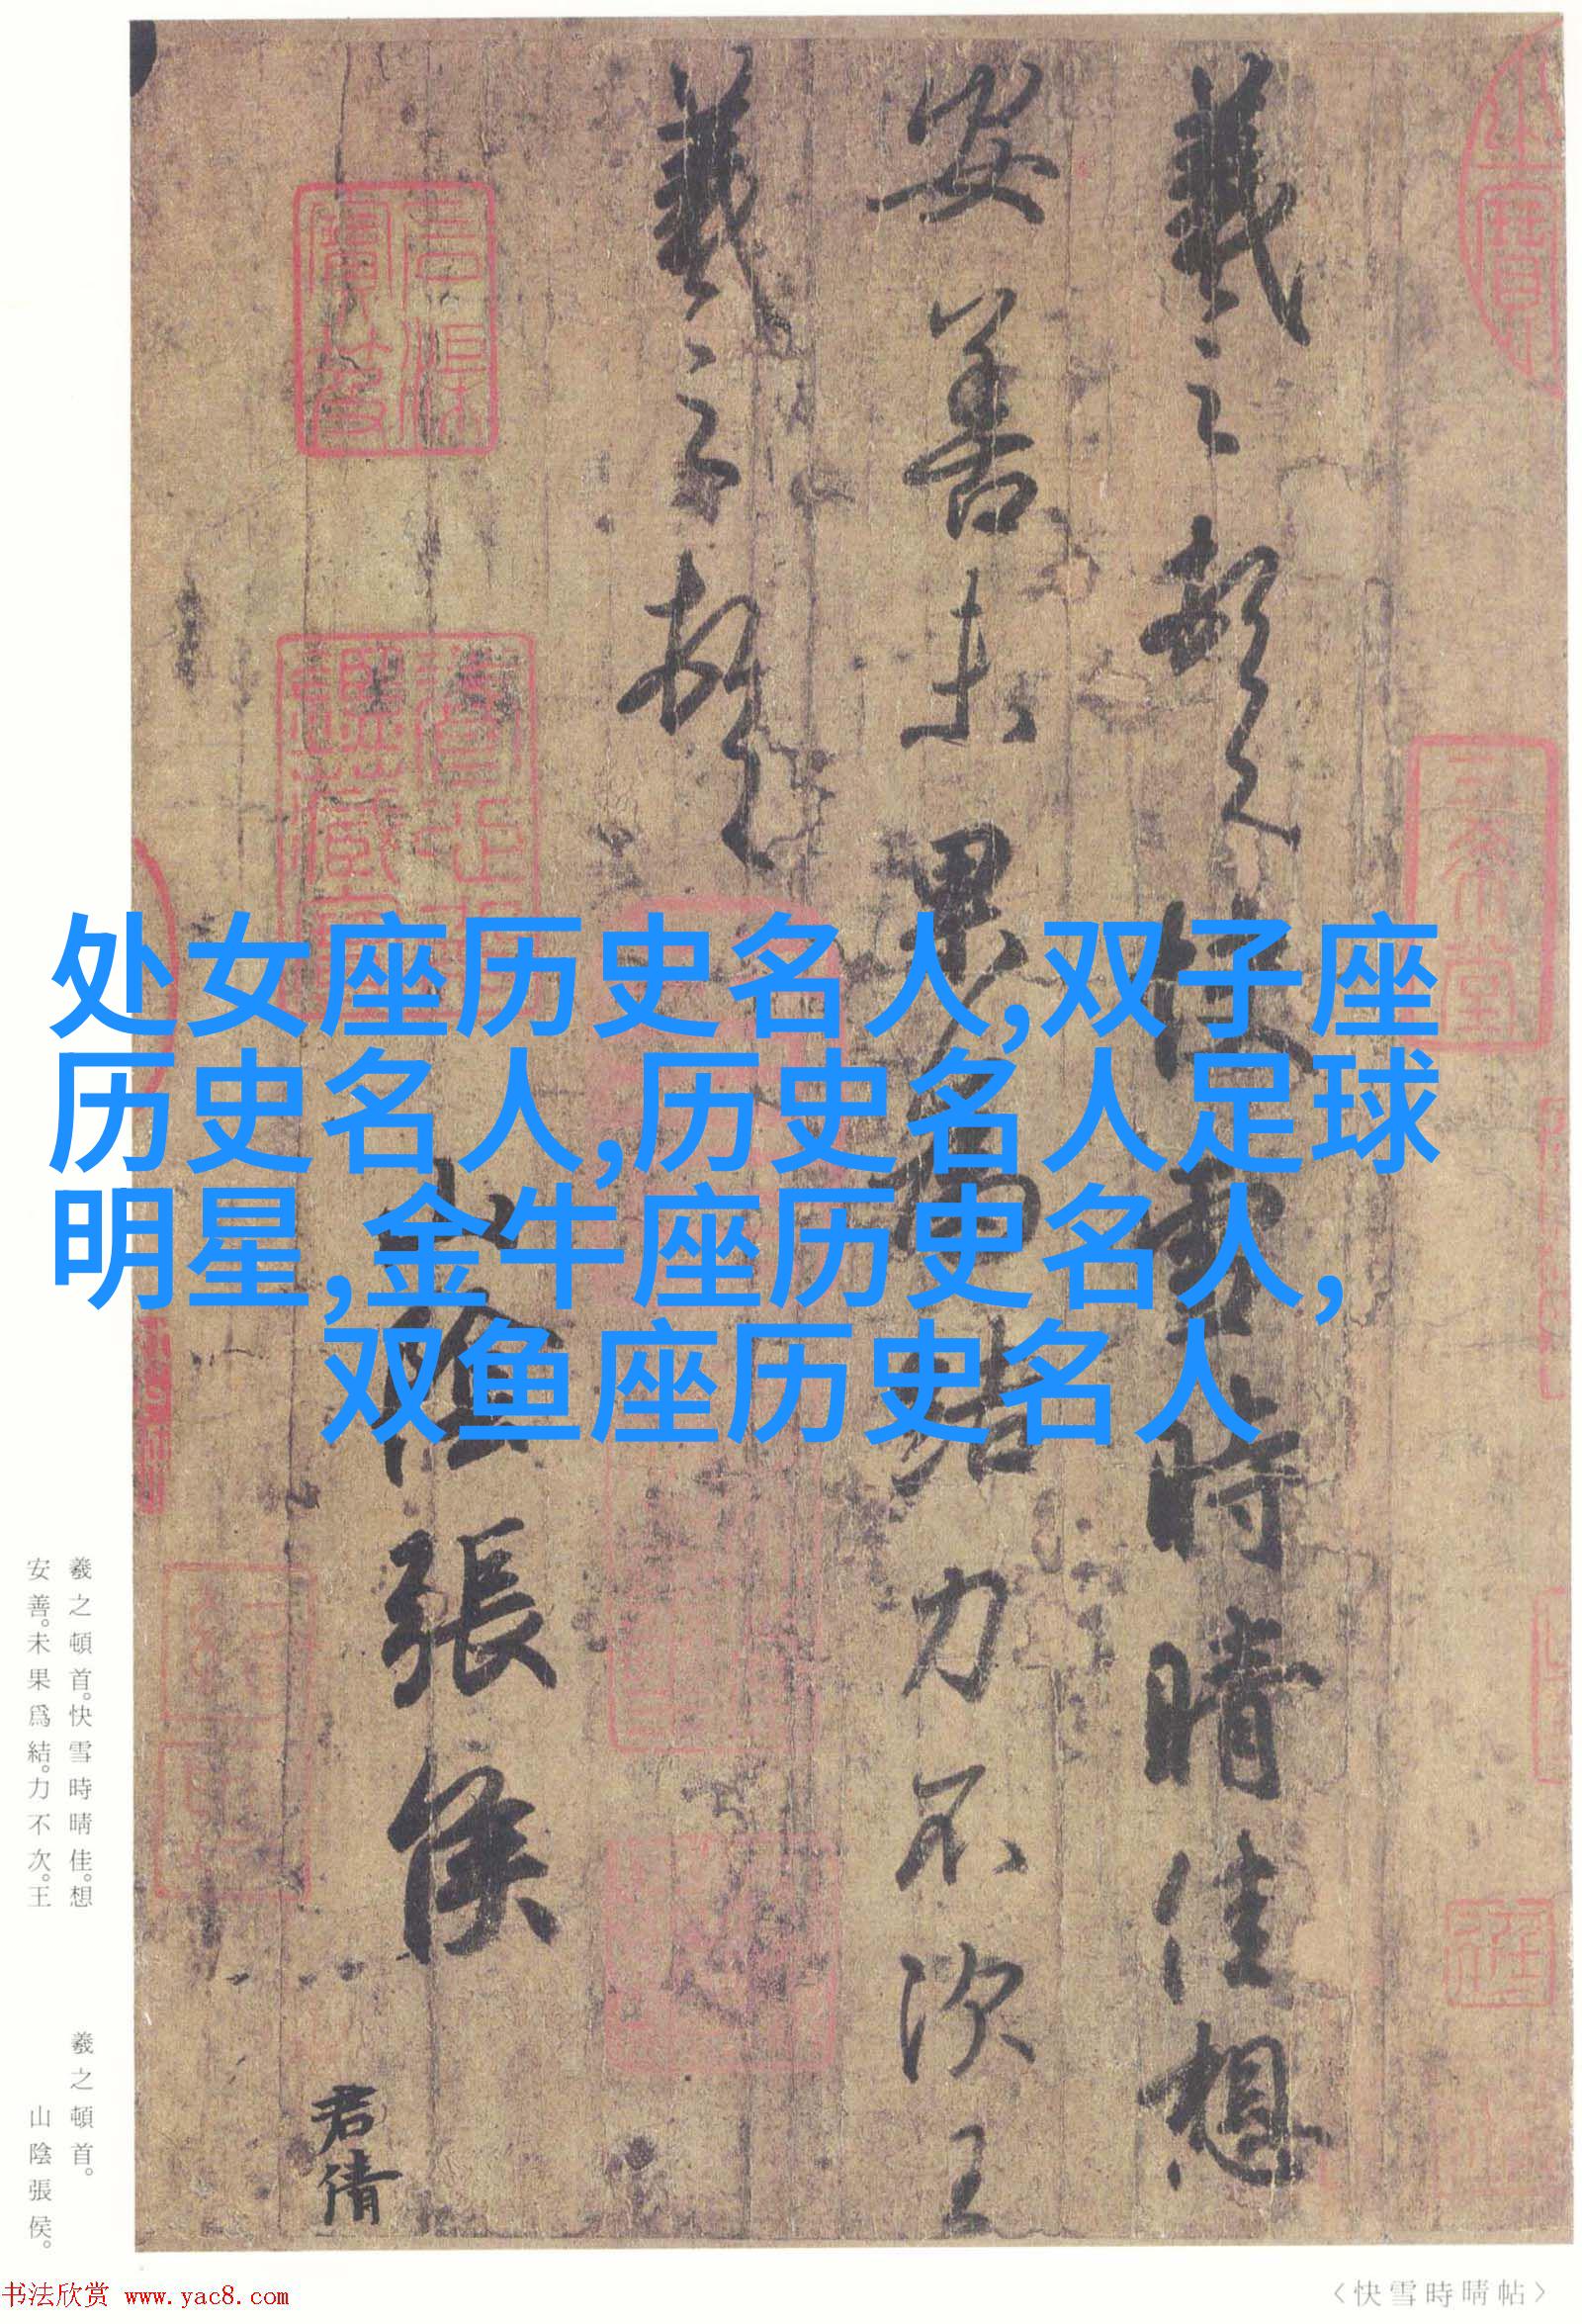 羲之頓首快雪時晴佳想
安善未果為結力不次王
羲之頓首
山陰張侯
君倩
處女座历史名人,双子座
历史名人,历史名人足球
明星,金牛座历史名人,
双鱼座历史名人
羲之頓首。快雪時晴佳。想
安善。未果爲結。力不次。王
羲之頓首。
山陰張侯。
书法欣赏 www.yac8.com
〈快雪時晴帖〉